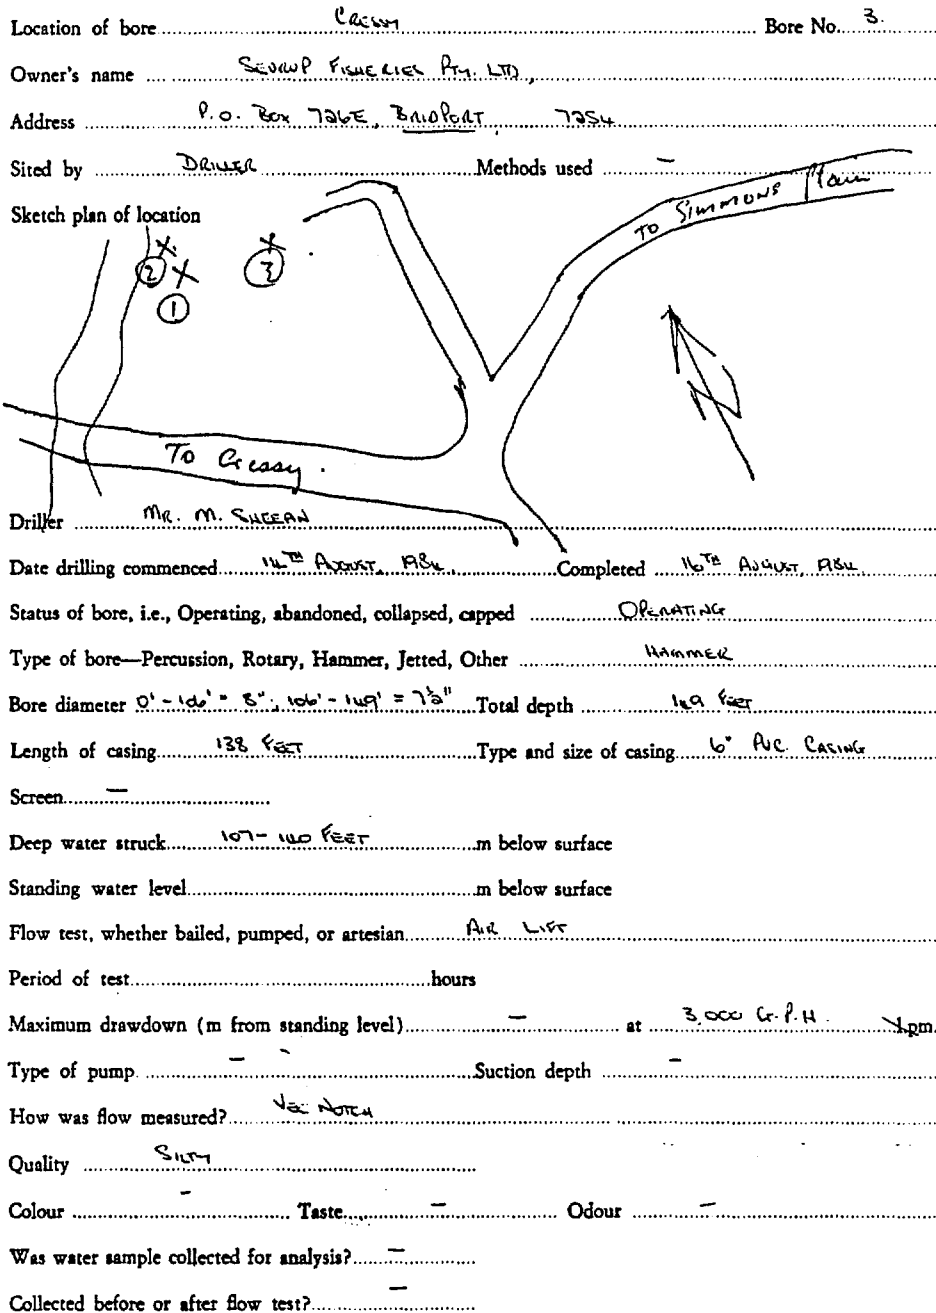 Location of bore Cressy Bore No. 3.
Owner's name Sevrup Fisheries Pty. Ltd,
Address P.O. Box 726E, Bridport 7254
Sited by Driller Methods used –
Sketch plan of location
To Simmons Plain
2 3
1
To Cressy.
N
Driller Mr. M. Sheean
Date drilling commenced 14TH August, 1984. Completed 16TH August, 1984.
Status of bore, i.e., Operating, abandoned, collapsed, capped Operating
Type of bore—Percussion, Rotary, Hammer, Jetted, Other Hammer
Bore diameter 0' - 106' = 8"; 106' - 149' = 7½" Total depth 149 Feet
Length of casing 138 Feet Type and size of casing 6" PVC. Casing
Screen –
Deep water struck 107-140 Feet m below surface
Standing water level m below surface
Flow test, whether bailed, pumped, or artesian Air Lift
Period of test hours
Maximum drawdown (m from standing level) – at 3,000 G.P.H. lpm.
Type of pump – Suction depth –
How was flow measured? Vee Notch
Quality Silty
Colour – Taste – Odour –
Was water sample collected for analysis? –
Collected before or after flow test? –